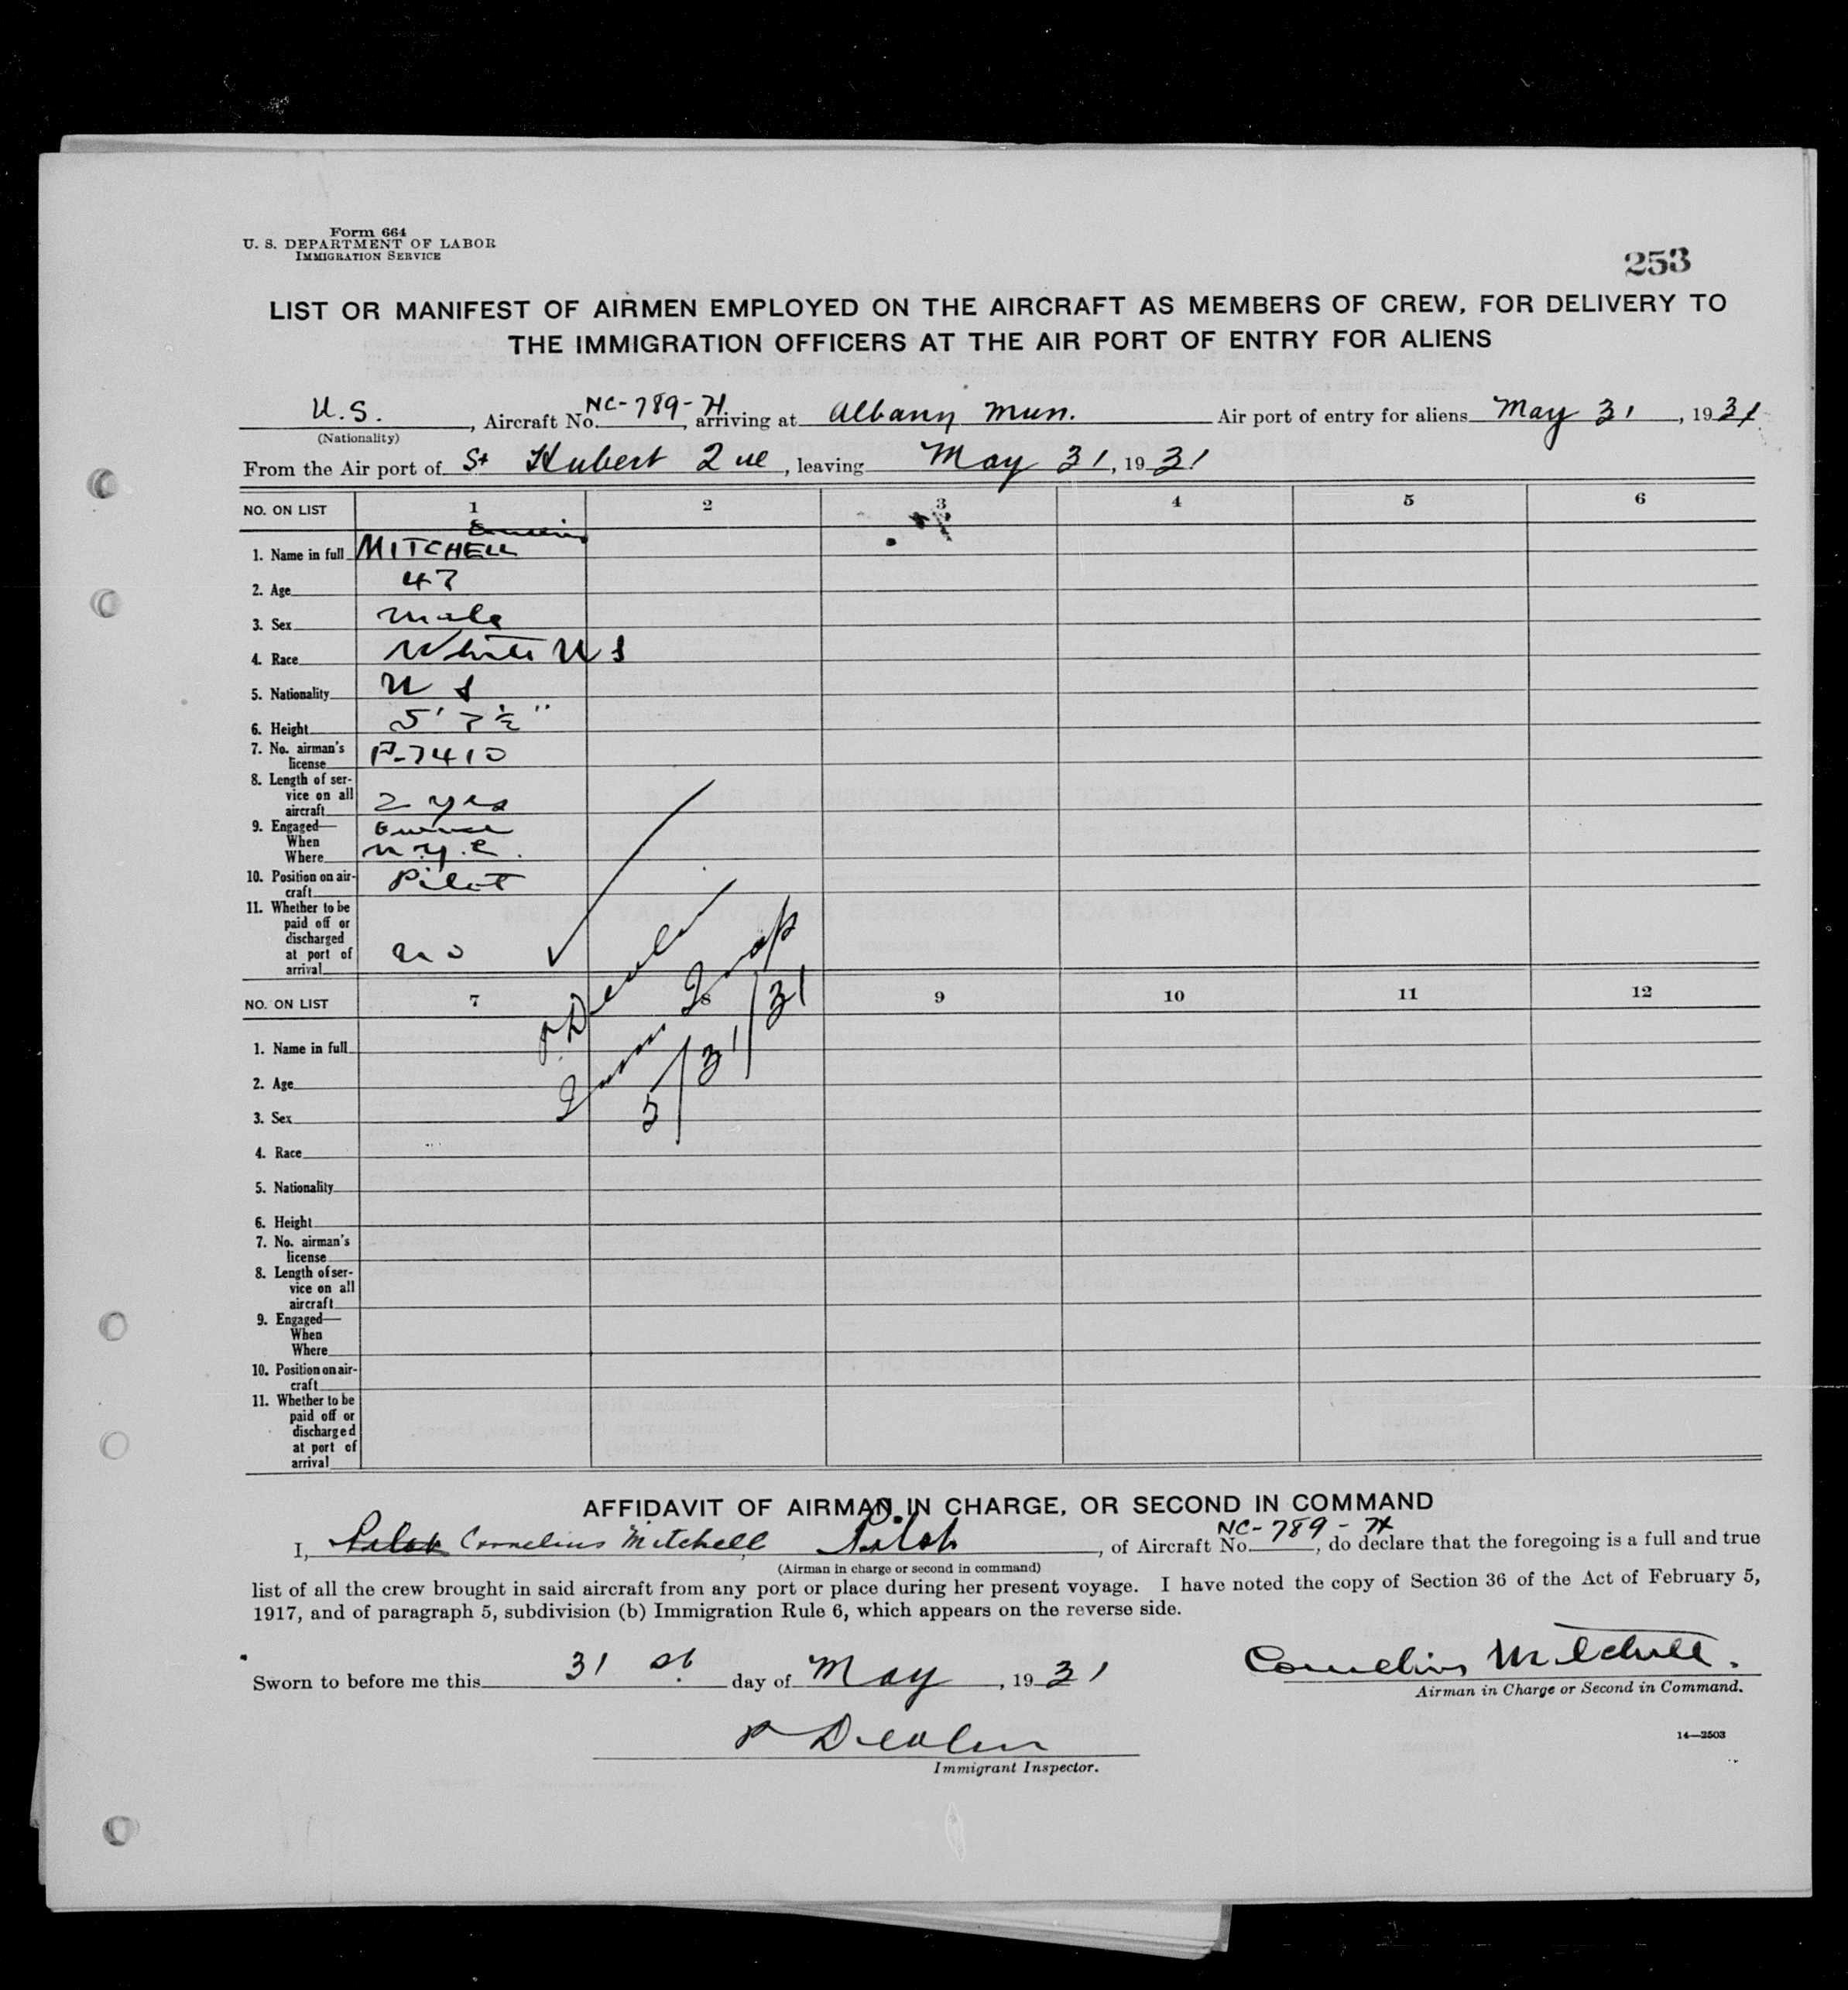 Form 664
U. S. DEPARTMENT OF LABOR
IMMIGRATION SERVICE
253
LIST OR MANIFEST OF AIRMEN EMPLOYED ON THE AIRCRAFT AS MEMBERS OF CREW, FOR DELIVERY TO
THE IMMIGRATION OFFICERS AT THE AIR PORT OF ENTRY FOR ALIENS
U.S., Aircraft No. NC-789-H, arriving at Albany Mun. Air port of entry for aliens May 31, 1931
(Nationality)
From the Air port of St Hubert Que, leaving May 31, 1931
NO. ON LIST 1 2 3 4 5 6
1. Name in full MITCHELL
2. Age 47
3. Sex male
4. Race White U S
5. Nationality U S
6. Height 5' 7 ½"
7. No. airman's license P-7410
8. Length of service on all aircraft 2 yrs
9. Engaged—
When
Where N.Y.C.
10. Position on aircraft Pilot
11. Whether to be paid off or discharged at port of arrival no
Imm Insp
5/31/31
NO. ON LIST 7 8 9 10 11 12
1. Name in full
2. Age
3. Sex
4. Race
5. Nationality
6. Height
7. No. airman's license
8. Length of service on all aircraft
9. Engaged—
When
Where
10. Position on aircraft
11. Whether to be paid off or discharged at port of arrival
AFFIDAVIT OF AIRMAN IN CHARGE, OR SECOND IN COMMAND
I, Pilot Cornelius Mitchell, Pilot, of Aircraft No. NC-789-H, do declare that the foregoing is a full and true
(Airman in charge or second in command)
list of all the crew brought in said aircraft from any port or place during her present voyage. I have noted the copy of Section 36 of the Act of February 5,
1917, and of paragraph 5, subdivision (b) Immigration Rule 6, which appears on the reverse side.
Sworn to before me this 31 st day of May, 1931
Cornelius Mitchell.
Airman in Charge or Second in Command.
14—2503
Immigrant Inspector.